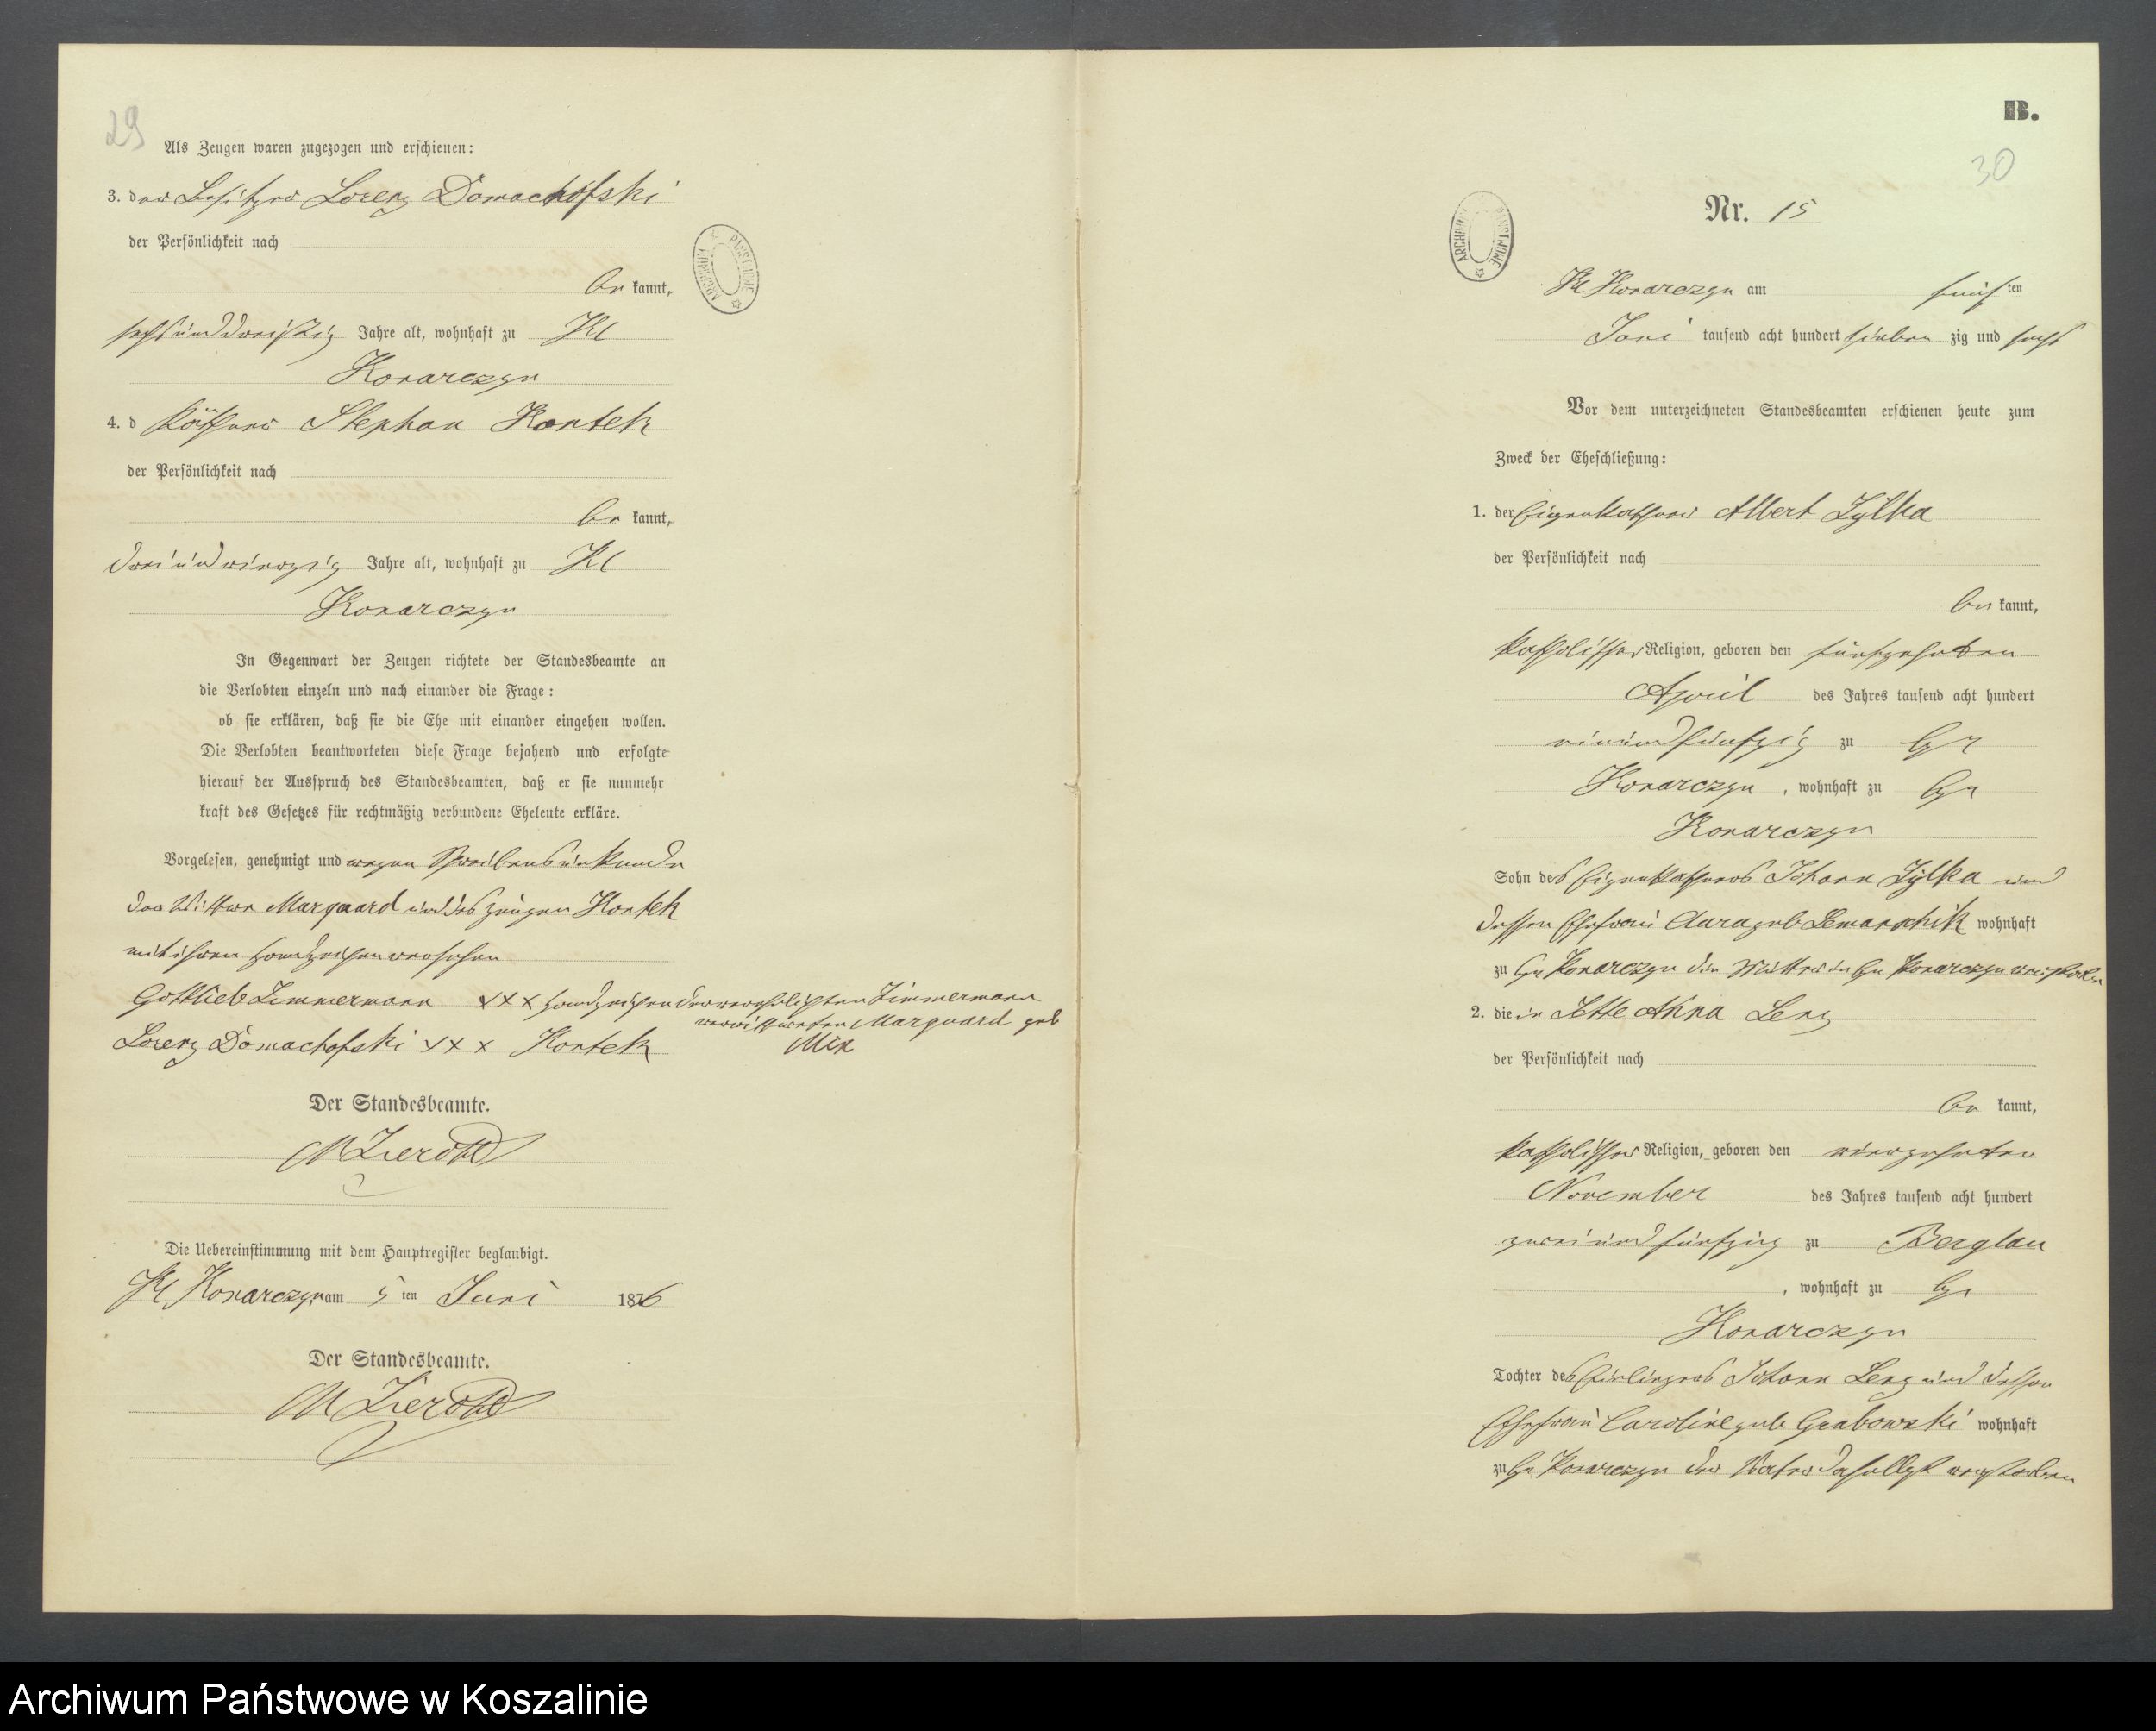 29
Als Zeugen waren zugezogen und erschienen:
3. der Besitzer Lorenz Domachofski
der Persönlichkeit nach
be kannt,
sechsunddreißig Jahre alt, wohnhaft zu Kl
Konarczyn
4. d Käthner Stephan Kontek
der Persönlichkeit nach
be kannt,
dreiundvierzig Jahre alt, wohnhaft zu Kl
Konarczyn
In Gegenwart der Zeugen richtete der Standesbeamte an
die Verlobten einzeln und nach einander die Frage:
ob sie erklären, daß sie die Ehe mit einander eingehen wollen.
Die Verlobten beantworteten diese Frage bejahend und erfolgte
hierauf der Ausspruch des Standesbeamten, daß er sie nunmehr
kraft des Gesetzes für rechtmäßig verbundene Eheleute erkläre.
Vorgelesen, genehmigt und wegen Schreibensunkunde
der Wittwe Marquard und des Zeugen Kontek
mit ihren Handzeichen versehen
Gottlieb Zimmermann XXX Handzeichen der verehelichten Zimmermann
verwittweten Marquard geb
Lorenz Domachofski XXX Kontek Mix
Der Standesbeamte.
Die Uebereinstimmung mit dem Hauptregister beglaubigt.
Kl Konarczyn am 5 ten Juni 1876
Der Standesbeamte.
ARCHIWUM PAŃSTWOWE
B.
30
ARCHIWUM PAŃSTWOWE
Nr. 15
Kl Konarczyn am fünf ten
Juni tausend acht hundert sieben zig und sechs
Vor dem unterzeichneten Standesbeamten erschienen heute zum
Zweck der Eheschließung:
1. der Eigenkathner Albert Zylka
der Persönlichkeit nach
be kannt,
katholischer Religion, geboren den fünfzehnten
April des Jahres tausend acht hundert
einundfünfzig zu Gr
Konarczyn, wohnhaft zu Gr
Konarczyn
Sohn des Eigenkathners Johann Zylka und
dessen Ehefrau geb wohnhaft
zu Gr Konarczyn die Mutter in Gr Konarczyn verstorben
2. die Jette Anna Lenz
der Persönlichkeit nach
be kannt,
katholischer Religion, geboren den vierzehnten
November des Jahres tausend acht hundert
zweiundfünfzig zu Berglau
, wohnhaft zu Gr
Konarczyn
Tochter des Einliegers Johann Lenz und dessen
Ehefrau Caroline geb Grabowski wohnhaft
zu Gr Konarczyn der Vater daselbst verstorben
Archiwum Państwowe w Koszalinie